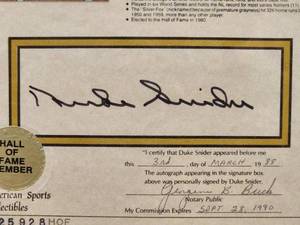 Played in six World Series and holds the NL record for most series homers (11).
The "Silver Fox" (nicknamed because of premature grayness) hit 326 home runs
1950 and 1959, more than any other player.
Elected to the Hall of Fame in 1980.
Duke Snider
HALL
OF
FAME
MEMBER
I certify that Duke Snider appeared before me
this 3rd, day of MARCH 1988
The autograph appearing in the signature
box above was personally signed by Duke Snider.
Notary Public
My Commission Expires SEPT. 28, 1990
American Sports
25928HOF